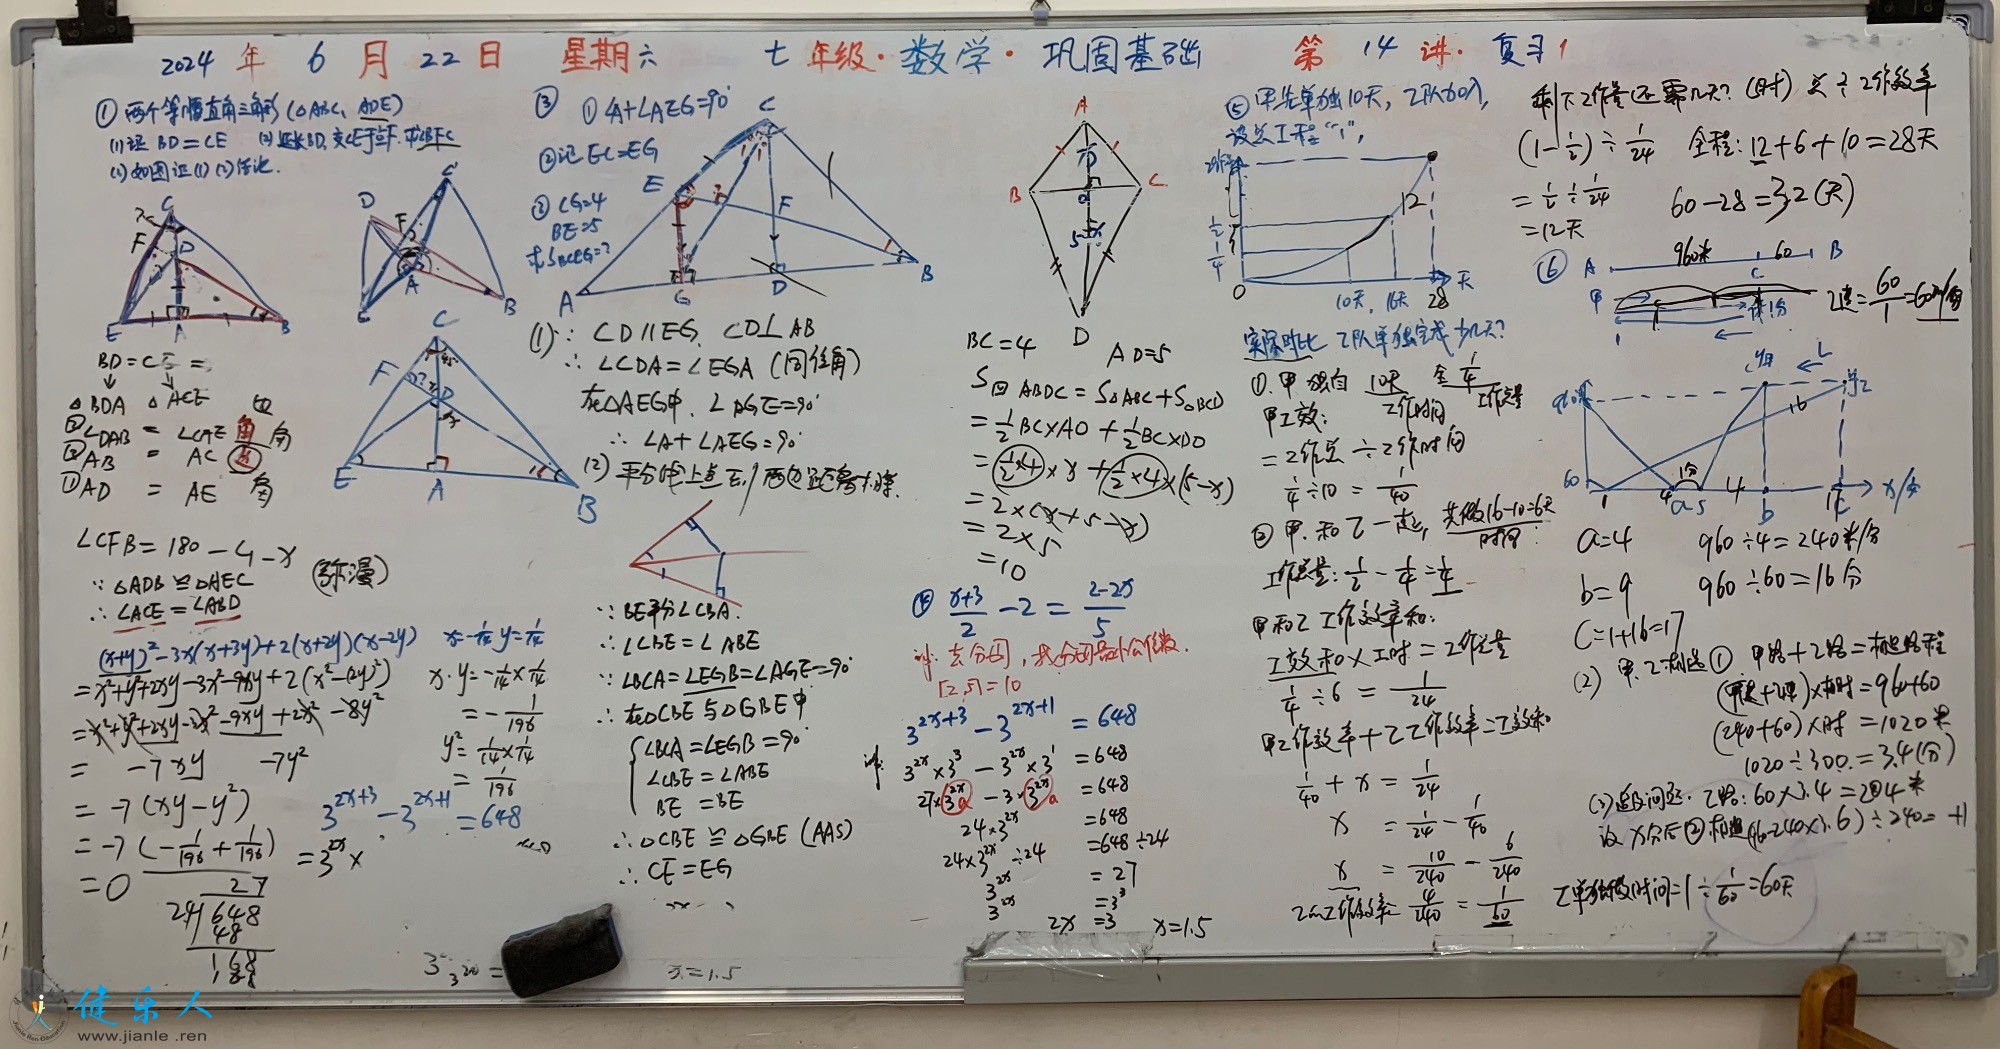 2024 年 6 月 22 日 星期六 七年级·数学·巩固基础 第 14 讲·复习1
① 两个等腰直角三角形 (△ABC, ADE)
(1) 证 BD=CE (2) 延长BD, 交CE于点F. 求∠BFC
C
F
D
E
A
B
D
F
C
A
B
BD=CE
△BDA △ACE
∠DAB = ∠CAE 角
AB = AC 边
① AD = AE
C
F
D
E
A
B
∠CFB=180-
∵ △ADB≌△AEC
∴ ∠ACE=∠ABD
(x+y)²-3x(x+3y)+2(x+2y)(x-2y)
=x²+y²+2xy-3x²-9xy+2(x²-4y²)
=x²+y²+2xy-3x²-9xy+2x²-8y²
= -7xy -7y²
=-7(xy-y²)
=-7(-1/196+1/196)
=0
x=-1/14 y=1/14
x·y=-1/14×1/14
=-1/196
y²=1/14×1/14
=1/196
3^{2x+3}-3^{2x+1}=648
=3^{2x}×
27
24 648
48
168
168
③ ① ∠A+∠AEG=90°
② 证 EC=EG
③ CG=4
BE=5
求S_{BCEG}=?
C
E
F
A
G
D
B
(1) ∵ CD∥EG, CD⊥AB
∴ ∠CDA=∠EGA (同位角)
在△AEG中, ∠AGE=90°
∴ ∠A+∠AEG=90°
(2) 平分线上点到两边距离相等.
∵ BE平分∠CBA
∴ ∠CBE=∠ABE
∵ ∠BCA=∠EGB=∠AGE=90°
∴ 在△CBE与△GBE中
∠BCA=∠EGB=90°
∠CBE=∠ABE
BE=BE
∴ △CBE≌△GBE (AAS)
∴ CE=EG
x=1.5
A
B
C
D
BC=4 AD=5
S四ABDC=S△ABC+S△BCD
=½BC×AO+½BC×DO
=½×4×x+½×4×(5-x)
=2×(x+5-x)
=2×5
=10
④ (x+3)/2-2=(2-2x)/5
解: 去分母, 找分母最小公倍数.
[2,5]=10
3^{2x+3}-3^{2x+1}=648
解: 3^{2x}×3³-3^{2x}×3¹=648
27×3^{2x}-3×3^{2x}=648
24×3^{2x}=648
24×3^{2x}÷24=648÷24
3^{2x}=27
3^{2x}=3³
2x=3 x=1.5
⑤ 甲先单独10天, 乙队加入,
设总工程"1",
½
¼
0
12
10天, 16天 28 天
实际对比 乙队单独完成多少几天?
①. 甲 独自 10天 全¼
工作时间 工作总量
甲工效:
=工作总÷工作时间
¼÷10=1/40
② 甲. 和乙一起, 共做16-10=6天
时间
工作总量: ½-¼=¼
甲和乙工作效率和:
工效和×工时=工作总量
¼÷6=1/24
甲工作效率+乙工作效率=工效和
1/40+x=1/24
x=1/24-1/40
x=10/240-6/240
乙的工作效率=4/240=1/60
乙单独做时间=1÷1/60=60天
剩下工作量还需几天? (时) 总÷工作效率
(1-½)÷1/24 全程: 12+6+10=28天
=½÷1/24 60-28=32(天)
=12天
⑥ A 960米 60 B
C
甲
乙速=60/1=60m/分
960
60
1 4 a 5 b c x/分
16
a=4 960÷4=240米/分
b=9 960÷60=16分
C=1+16=17
(2) 甲.乙相遇 ① 甲路+乙路=相遇路程
(甲速+乙速)×时=960+60
(240+60)×时=1020米
1020÷300=3.4(分)
(3) 追及问题. 乙路: 60×3.4=204米
健乐人
www.jianle.ren